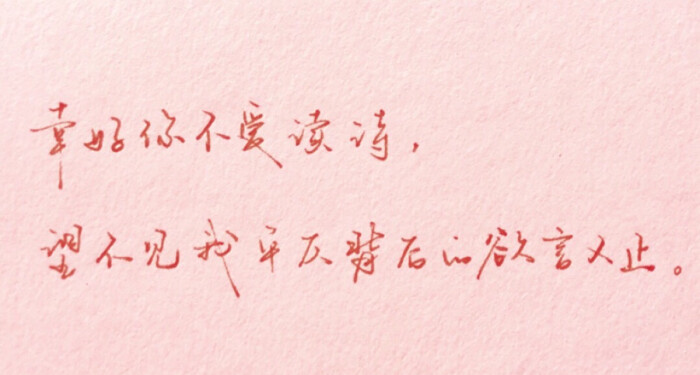 幸好你不爱读诗，
望不见我平仄背后的欲言又止。